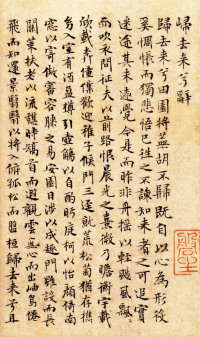 歸去來兮辭
歸去來兮田園將蕪胡不歸既自以心為形役
奚惆悵而獨悲悟已往之不諫知來者之可追實
迷途其未遠覺今是而昨非舟搖〻以輕颺風飄〻
而吹衣問征夫以前路恨晨光之熹微乃瞻衡宇載
欣載奔僮僕歡迎稚子候門三逕就荒松菊猶存攜
幼入室有酒盈樽引壺觴以自酌眄庭柯以怡顏倚南
窗以寄傲審容膝之易安園日涉以成趣門雖設而長
關策扶老以流憩時矯首而遐觀雲無心而出岫鳥倦
飛而知還景翳翳以將入撫孤松而盤桓歸去來兮且